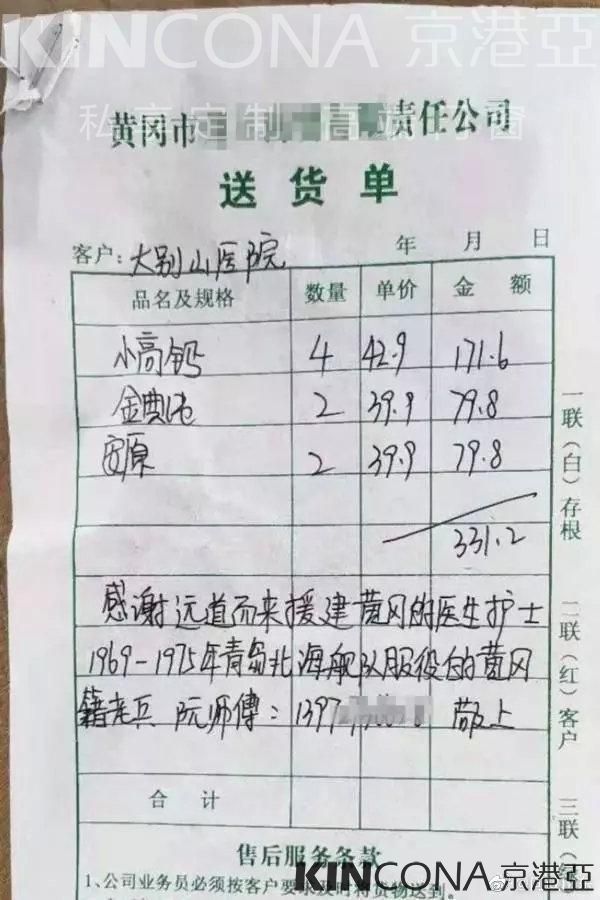 KINCONA 京港亞
私享定制 高端门窗
黄冈市 责任公司
送货单
客户: 大别山医院 年 月 日
品名及规格 数量 单价 金额
小高钙 4 42.9 171.6
金典 2 39.9 79.8
安原 2 39.9 79.8
331.2
感谢远道而来援建黄冈的医生护士
1969-1975年青岛北海舰队服役的黄冈
籍老兵 阮师傅: 1397 敬上
合计
售后服务条款
1、公司业务员必须按客户要求及时将货物送到。
一联(白)存根
二联(红)客户
三联(
KINCONA 京港亞